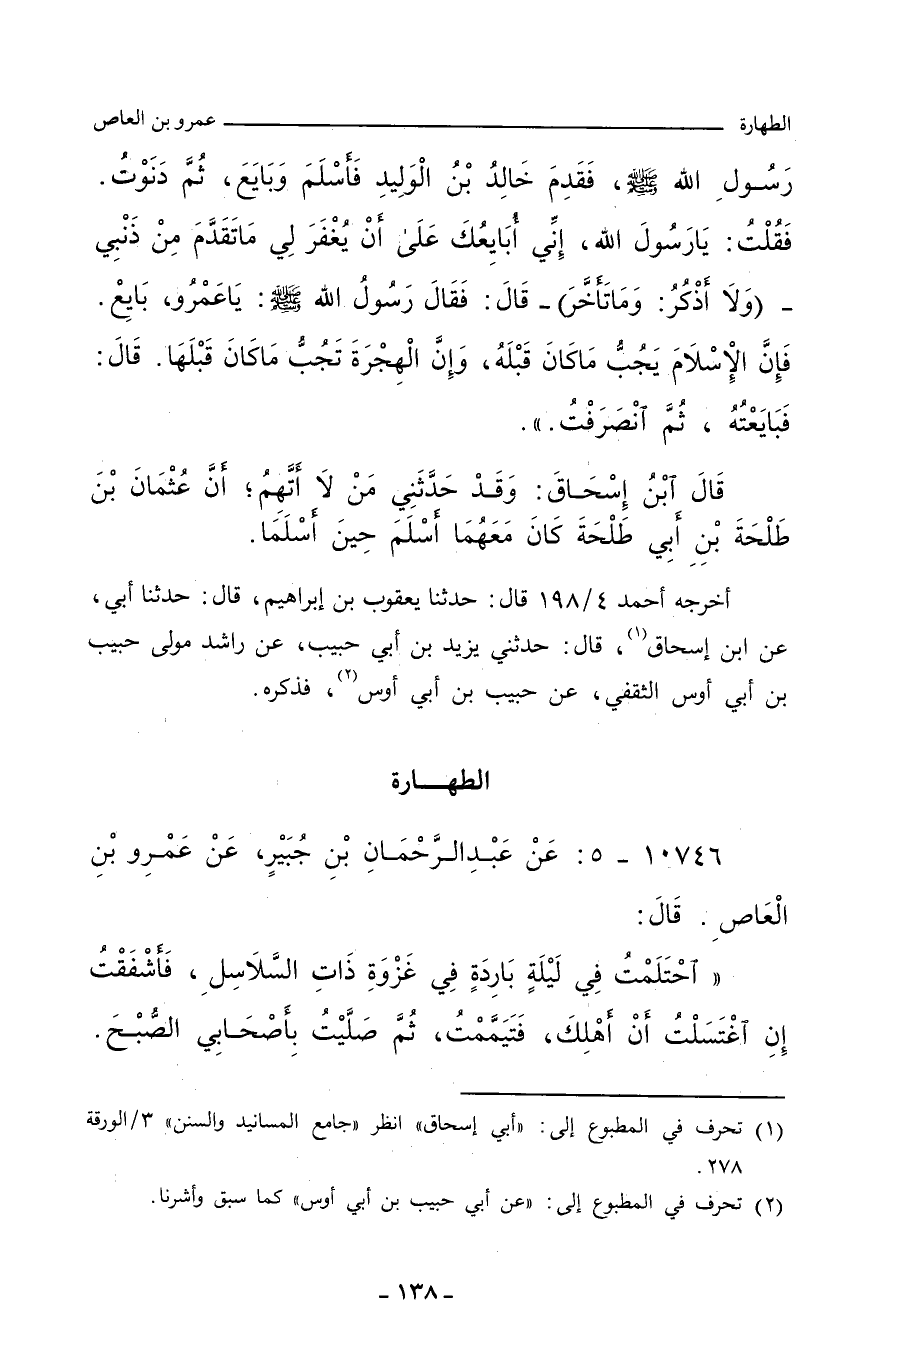 الطهارة ــــــــــــ عمرو بن العاص
رَسُولِ الله ﷺ، فَقَدِمَ خَالِدُ بْنُ الْوَلِيدِ فَأَسْلَمَ وَبَايَعَ، ثُمَّ دَنَوْتُ.
فَقُلْتُ: يَارَسُولَ الله، إِنِّي أُبَايِعُكَ عَلَىٰ أَنْ يُغْفَرَ لِي مَاتَقَدَّمَ مِنْ ذَنْبِي
ـ (وَلَا أَذْكُرُ: وَمَاتَأَخَّرَ) ـ قَالَ: فَقَالَ رَسُولُ الله ﷺ: يَاعَمْرُو، بَايِعْ.
فَإِنَّ الْإِسْلَامَ يَجُبُّ مَاكَانَ قَبْلَهُ، وَإِنَّ الْهِجْرَةَ تَجُبُّ مَاكَانَ قَبْلَهَا. قَالَ:
فَبَايَعْتُهُ، ثُمَّ ٱنْصَرَفْتُ.».
قَالَ ٱبْنُ إِسْحَاقَ: وَقَدْ حَدَّثَنِي مَنْ لَا أَتَّهِمُ؛ أَنَّ عُثْمَانَ بْنَ
طَلْحَةَ بْنِ أَبِي طَلْحَةَ كَانَ مَعَهُمَا أَسْلَمَ حِينَ أَسْلَمَا.
أخرجه أحمد ١٩٨/٤ قال: حدثنا يعقوب بن إبراهيم، قال: حدثنا أبي،
عن ابن إسحاق(١)، قال: حدثني يزيد بن أبي حبيب، عن راشد مولى حبيب
بن أبي أوس الثقفي، عن حبيب بن أبي أوس(٢)، فذكره.
الطهـــارة
١٠٧٤٦ ـ ٥: عَنْ عَبْدِالرَّحْمَانِ بْنِ جُبَيْرٍ، عَنْ عَمْرِو بْنِ
الْعَاصِ. قَالَ:
« ٱحْتَلَمْتُ فِي لَيْلَةٍ بَارِدَةٍ فِي غَزْوَةِ ذَاتِ السَّلَاسِلِ، فَأَشْفَقْتُ
إِنِ ٱغْتَسَلْتُ أَنْ أَهْلِكَ، فَتَيَمَّمْتُ، ثُمَّ صَلَّيْتُ بِأَصْحَابِي الصُّبْحَ.
(١) تحرف في المطبوع إلى: «أبي إسحاق» انظر «جامع المسانيد والسنن» ٣/الورقة
٢٧٨.
(٢) تحرف في المطبوع إلى: «عن أبي حبيب بن أبي أوس» كما سبق وأشرنا.
ـ ١٣٨ ـ